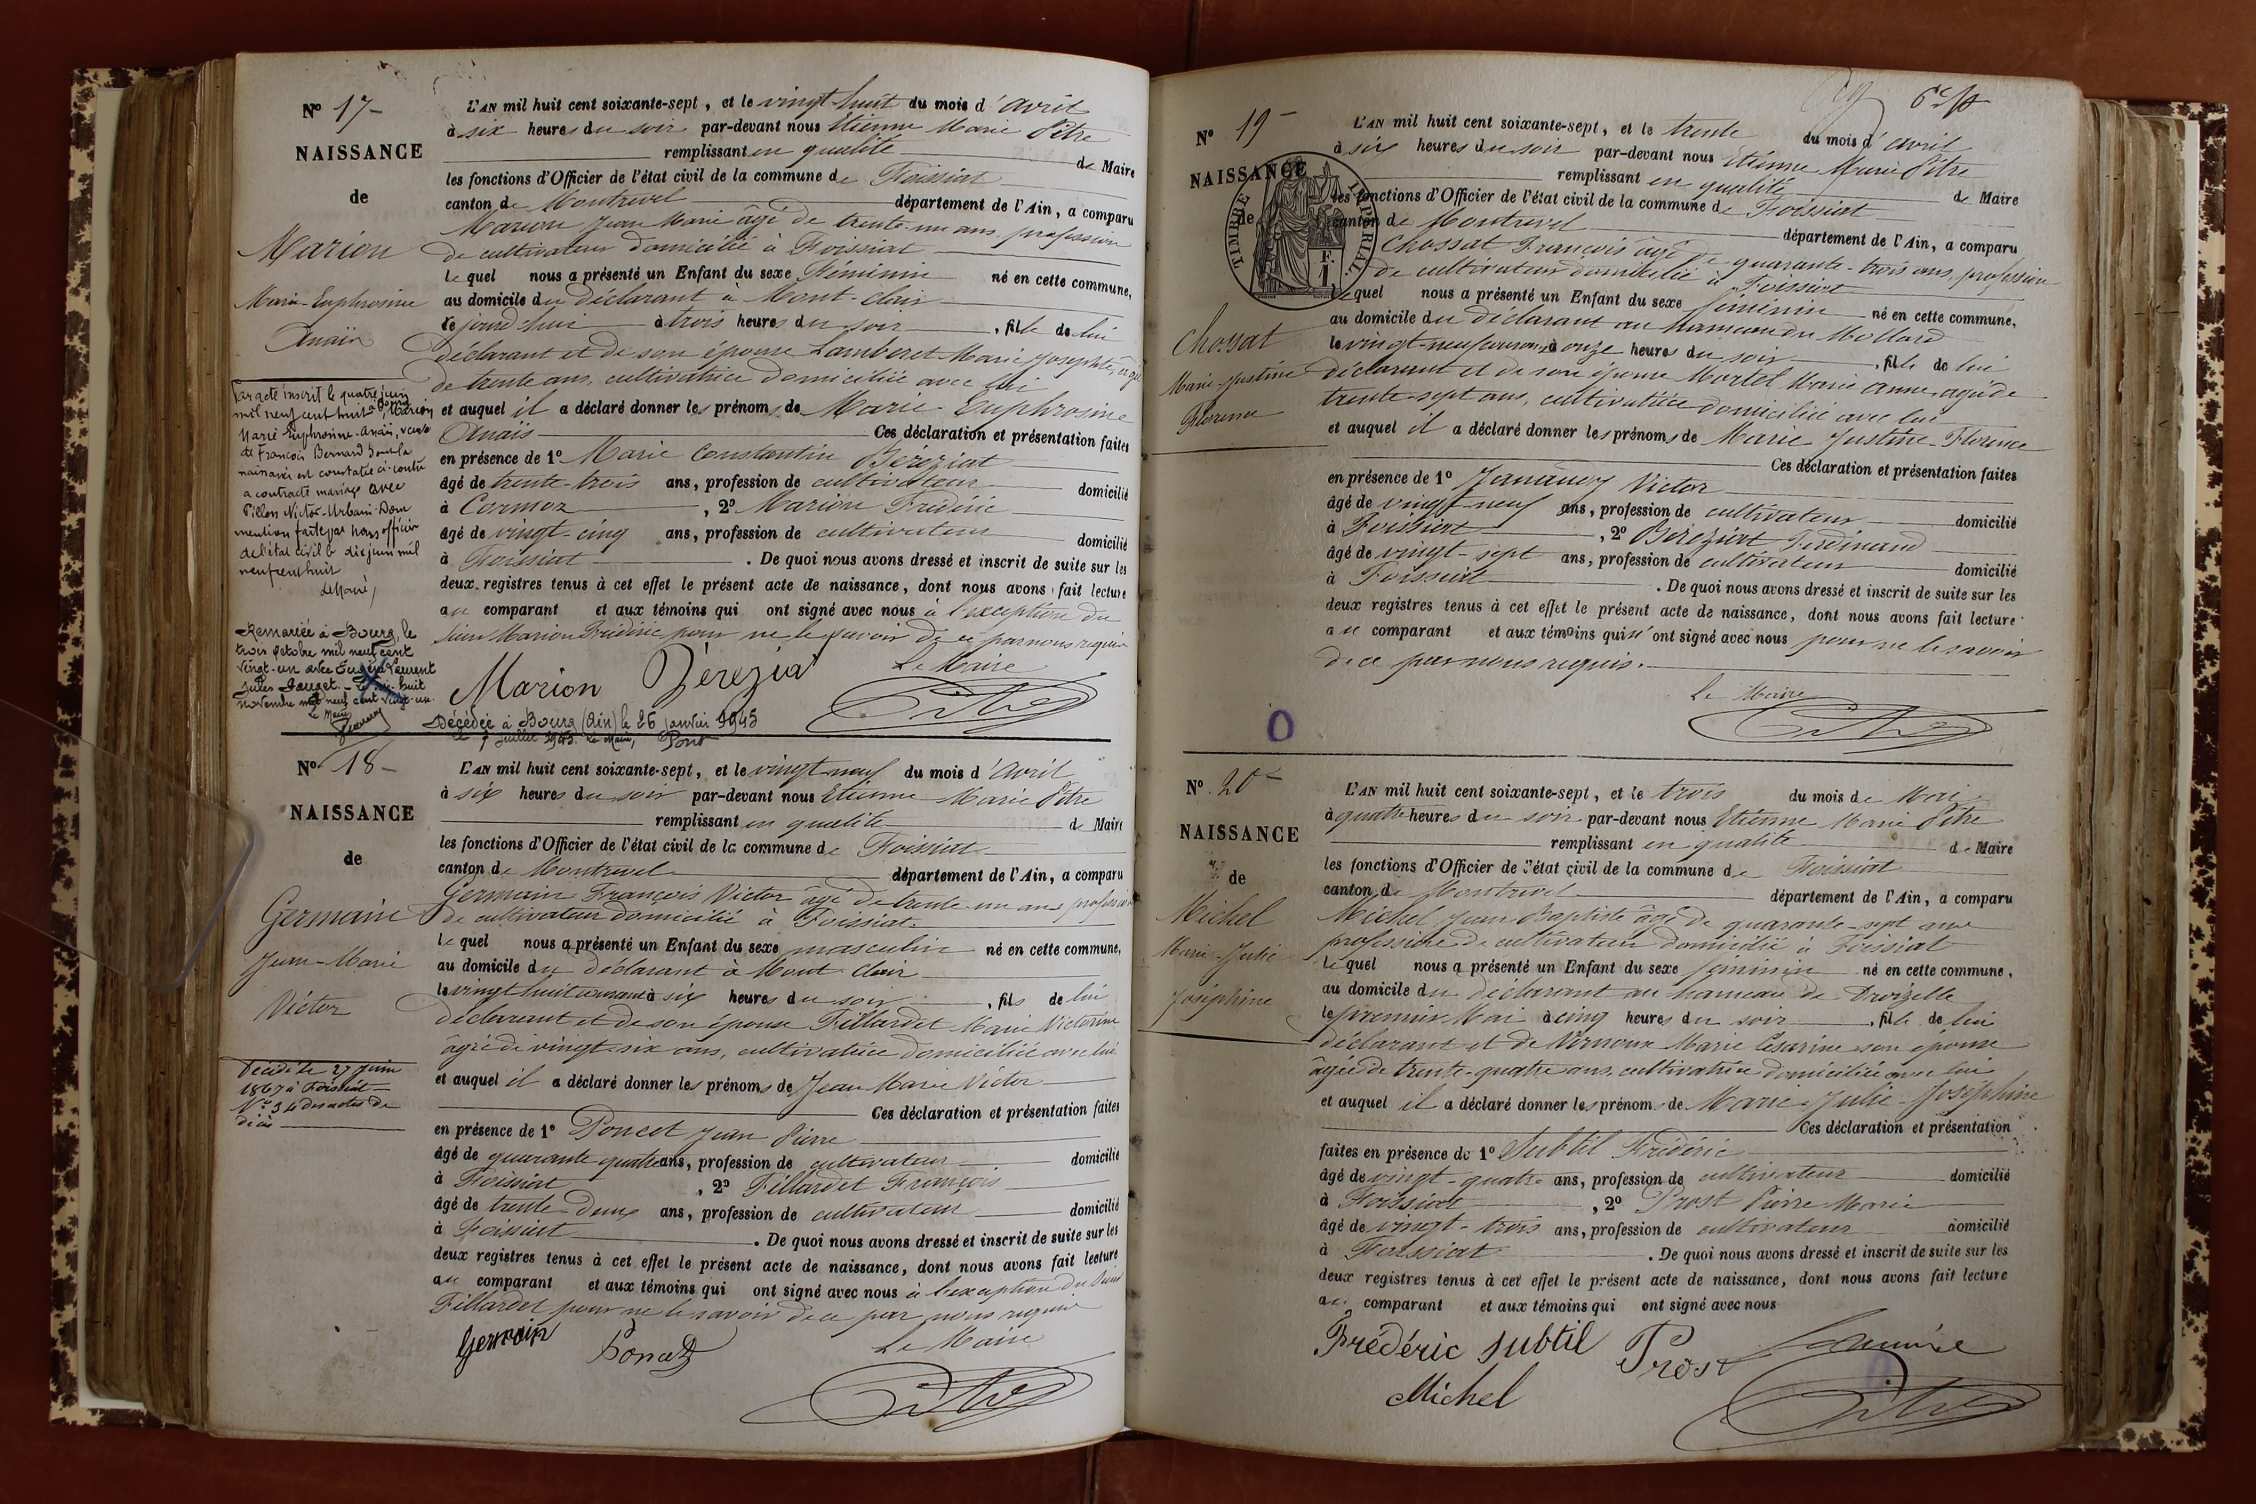 N° 17
NAISSANCE
de
Marion
Marie-Euphrosine
Anaïs
Par acte inscrit le quatre juin
mil neuf cent huit à Bourg, Marion
Marie Euphrosine-Anaïs, veuve
de François Bernard dont la
naissance est constatée ci-contre
a contracté mariage avec
Pillon Victor-Urbain. Dont
mention faite par nous officier
de l'état civil le dix juin mil
neuf cent huit
Le Maire,
Remariée à Bourg, le
trois octobre mil neuf cent
vingt-un avec Eugène Laurent
Jules Janget. - Le huit
novembre mil neuf cent vingt-un.
Le Maire
L'AN mil huit cent soixante-sept, et le vingt-huit du mois d'avril
à six heures du soir par-devant nous Etienne Marie Pitre
remplissant en qualité de Maire
les fonctions d'Officier de l'état civil de la commune de Foissiat
canton de Montrevel département de l'Ain, a comparu
Marion Jean Marie âgé de trente-un ans, profession
de cultivateur domicilié à Foissiat
lequel nous a présenté un Enfant du sexe Féminin né en cette commune,
au domicile du déclarant à Mont-clair
le jourd'hui à trois heures du soir, fille de lui
déclarant et de son épouse Lamberet Marie Josephte, âgée
de trente ans, cultivatrice domiciliée avec lui
et auquel il a déclaré donner les prénoms de Marie Euphrosine
Anaïs Ces déclaration et présentation faites
en présence de 1° Marie Constantin Béréziat
âgé de trente-trois ans, profession de cultivateur domicilié
à Cormoz, 2° Marion Frédéric
âgé de vingt-cinq ans, profession de cultivateur domicilié
à Foissiat. De quoi nous avons dressé et inscrit de suite sur les
deux registres tenus à cet effet le présent acte de naissance, dont nous avons fait lecture
au comparant et aux témoins qui ont signé avec nous à l'exception du
sieur Marion Frédéric pour ne le savoir de ce par nous requis
Marion Bérézia Le Maire
Pitre
Décédée à Bourg (Ain) le 26 janvier 1945
le 7 juillet 1945. Le Maire, Pont
N° 18
NAISSANCE
de
Germain
Jean-Marie
Victor
Décédé le 27 juin
1867 à Foissiat
N° 34 des actes de
décès
L'AN mil huit cent soixante-sept, et le vingt-neuf du mois d'avril
à six heures du soir par-devant nous Etienne Marie Pitre
remplissant en qualité de Maire
les fonctions d'Officier de l'état civil de la commune de Foissiat
canton de Montrevel département de l'Ain, a comparu
Germain François Victor âgé de trente-un ans profession
de cultivateur domicilié à Foissiat.
lequel nous a présenté un Enfant du sexe masculin né en cette commune,
au domicile du déclarant à Mont-clair
le vingt huit courant à six heures du soir, fils de lui
déclarant et de son épouse Fillardet Marie Victorine
âgée de vingt-six ans, cultivatrice domiciliée avec lui
et auquel il a déclaré donner les prénoms de Jean Marie Victor
Ces déclaration et présentation faites
en présence de 1° Poncet Jean Pierre
âgé de quarante quatre ans, profession de cultivateur domicilié
à Foissiat, 2° Fillardet François
âgé de trente-deux ans, profession de cultivateur domicilié
à Foissiat. De quoi nous avons dressé et inscrit de suite sur les
deux registres tenus à cet effet le présent acte de naissance, dont nous avons fait lecture
au comparant et aux témoins qui ont signé avec nous à l'exception du sieur
Fillardet pour ne le savoir de ce par nous requis
Germain Poncet Le Maire
Pitre
6e
N° 19
NAISSANCE
de
TIMBRE IMPÉRIAL
1 F.
Chossat
Marie-Justine
Florence
L'AN mil huit cent soixante-sept, et le trente du mois d'avril
à six heures du soir par-devant nous Etienne Marie Pitre
remplissant en qualité de Maire
les fonctions d'Officier de l'état civil de la commune de Foissiat
canton de Montrevel département de l'Ain, a comparu
Chossat François âgé de quarante-trois ans, profession
de cultivateur domicilié à Foissiat
lequel nous a présenté un Enfant du sexe féminin né en cette commune,
au domicile du déclarant au hameau du Mollard
le vingt-neuf courant à onze heures du soir, fille de lui
déclarant et de son épouse Mortel Marie Anne, âgée de
trente-sept ans, cultivatrice domiciliée avec lui
et auquel il a déclaré donner les prénoms de Marie Justine Florence
Ces déclaration et présentation faites
en présence de 1° Janaudy Victor
âgé de vingt-neuf ans, profession de cultivateur domicilié
à Foissiat, 2° Béréziat Ferdinand
âgé de vingt-sept ans, profession de cultivateur domicilié
à Foissiat. De quoi nous avons dressé et inscrit de suite sur les
deux registres tenus à cet effet le présent acte de naissance, dont nous avons fait lecture
au comparant et aux témoins qui n'ont signé avec nous pour ne le savoir
de ce par nous requis.
Le Maire
Pitre
N° 20
NAISSANCE
de
Michel
Marie-Julie
Joséphine
L'AN mil huit cent soixante-sept, et le trois du mois de Mai
à quatre heures du soir par-devant nous Etienne Marie Pitre
remplissant en qualité de Maire
les fonctions d'Officier de l'état civil de la commune de Foissiat
canton de Montrevel département de l'Ain, a comparu
Michel Jean Baptiste âgé de quarante-sept ans
profession de cultivateur domicilié à Foissiat
lequel nous a présenté un Enfant du sexe féminin né en cette commune,
au domicile du déclarant au hameau de Broizelle
le premier Mai à cinq heures du soir, fille de lui
déclarant et de Vernoux Marie Césarine son épouse
âgée de trente-quatre ans, cultivatrice domiciliée avec lui
et auquel il a déclaré donner les prénoms de Marie Julie Joséphine
Ces déclaration et présentation
faites en présence de 1° Subtil Frédéric
âgé de vingt-quatre ans, profession de cultivateur domicilié
à Foissiat, 2° Prost Pierre Marie
âgé de vingt-trois ans, profession de cultivateur domicilié
à Foissiat. De quoi nous avons dressé et inscrit de suite sur les
deux registres tenus à cet effet le présent acte de naissance, dont nous avons fait lecture
au comparant et aux témoins qui ont signé avec nous
Frédéric Subtil Prost Le maire
Michel Pitre